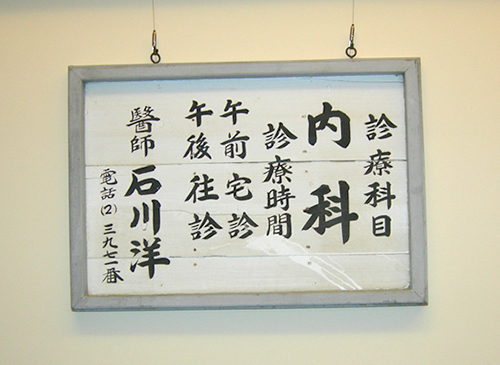 診療科目
内科
診療時間
午前宅診
午後往診
醫師 石川洋
電話(2)三九七一番